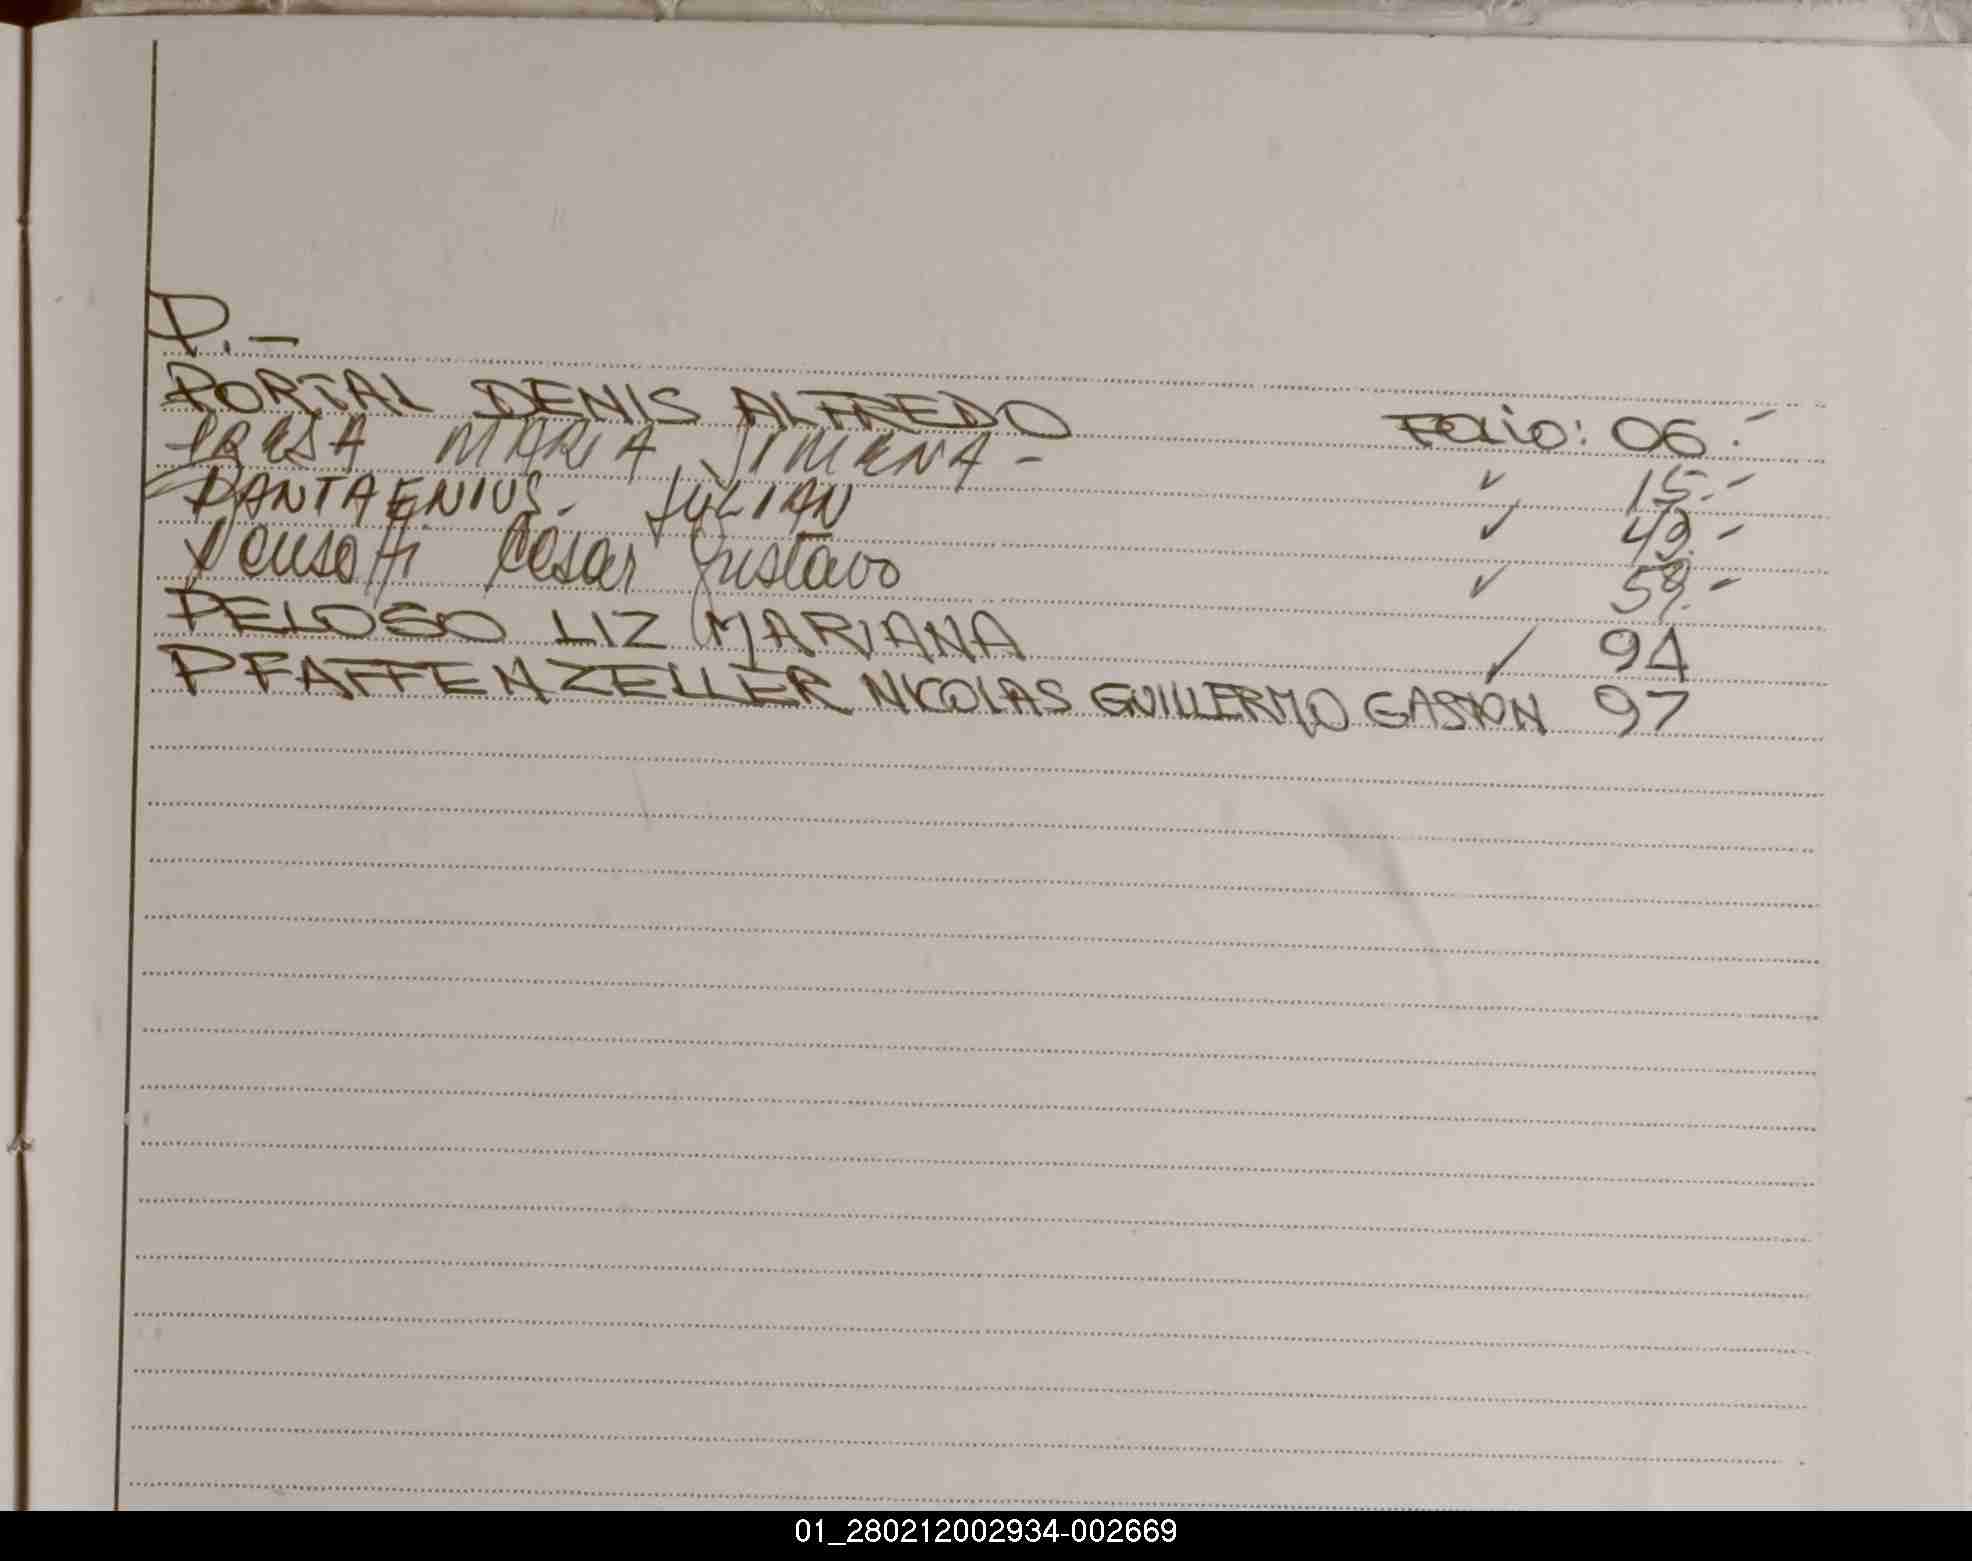 P.-
PORTAL DENIS ALFREDO Folio: 06.-
PRESA MARIA JIMENA - ✓ 15.-
PANTAENIUS. JULIAN ✓ 49.-
Cesar Gustavo ✓ 58.-
PELOSO LIZ MARIANA ✓ 94
PFAFFENZELLER NICOLAS GUILLERMO GASTON 97
01_280212002934-002669